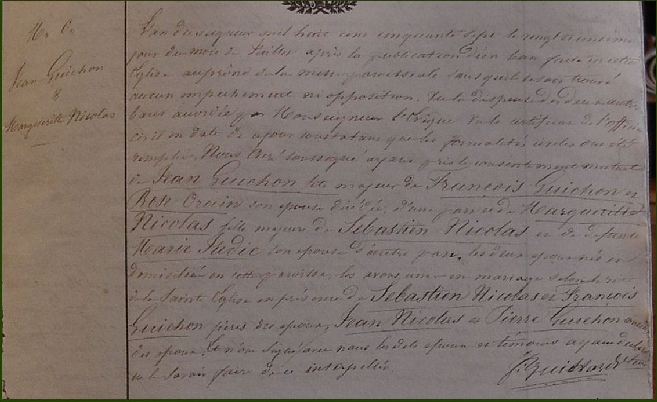 N. 6.
Jean Guichon
&
Marguerite Nicolas
L'an du seigneur mil huit cent cinquante sept le vingt
jour du mois de Juillet après la publication d'un ban faite en notre
Eglise au prône de la messe paroissiale sans qu'il se soit trouvé
aucun empêchement ni opposition. Vu la dispense des deux autres
bans accordée par Monseigneur l'évêque Vu le certificat de l'officier
civil en date de ce jour constatant que les formalités civiles ont été
remplies, Nous Curé soussigné ayant pris le consentement mutuel
de Jean Guichon fils majeur de François Guichon et
Rose son épouse d'une part et de Marguerite
Nicolas fille majeure de Sebastien Nicolas et de défunte
Marie son épouse d'autre part, les deux époux nés et
domiciliés en cette paroisse, les avons unis en mariage selon le rit
de la Sainte Eglise en présence de Sebastien Nicolas et François
Guichon pères des époux, Jean Nicolas et Pierre Guichon
des époux. Le n'ont signé avec nous les dits époux et témoins ayant déclaré
ne le savoir faire de ce interpellés.